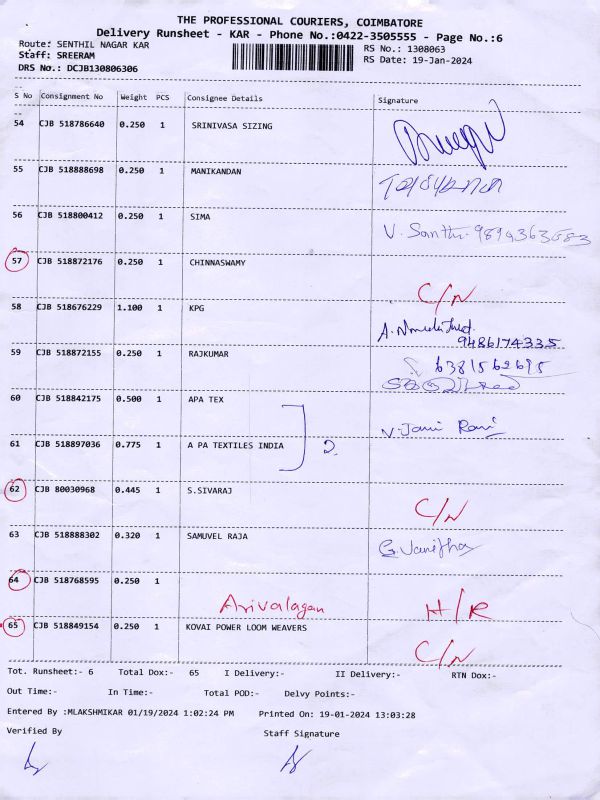 THE PROFESSIONAL COURIERS, COIMBATORE
Delivery Runsheet - KAR - Phone No.:0422-3505555 - Page No.:6
Route: SENTHIL NAGAR KAR RS No.: 1308063
Staff: SREERAM RS Date: 19-Jan-2024
DRS No.: DCJB130806306
S No Consignment No Weight PCS Consignee Details Signature
54 CJB 518786640 0.250 1 SRINIVASA SIZING
55 CJB 518888698 0.250 1 MANIKANDAN
56 CJB 518800412 0.250 1 SIMA V. Santhi.
57 CJB 518872176 0.250 1 CHINNASWAMY C/N
58 CJB 518676229 1.100 1 KPG A.
9486174335
59 CJB 518872155 0.250 1 RAJKUMAR 6381562695
60 CJB 518842175 0.500 1 APA TEX V. Jani Rani
61 CJB 518897036 0.775 1 A PA TEXTILES INDIA 2.
62 CJB 80030968 0.445 1 S.SIVARAJ C/N
63 CJB 518888302 0.320 1 SAMUVEL RAJA
64 CJB 518768595 0.250 1 Arivalagan H/R
65 CJB 518849154 0.250 1 KOVAI POWER LOOM WEAVERS C/N
Tot. Runsheet:- 6 Total Dox:- 65 I Delivery:- II Delivery:- RTN Dox:-
Out Time:- In Time:- Total POD:- Delvy Points:-
Entered By :MLAKSHMIKAR 01/19/2024 1:02:24 PM Printed On: 19-01-2024 13:03:28
Verified By Staff Signature